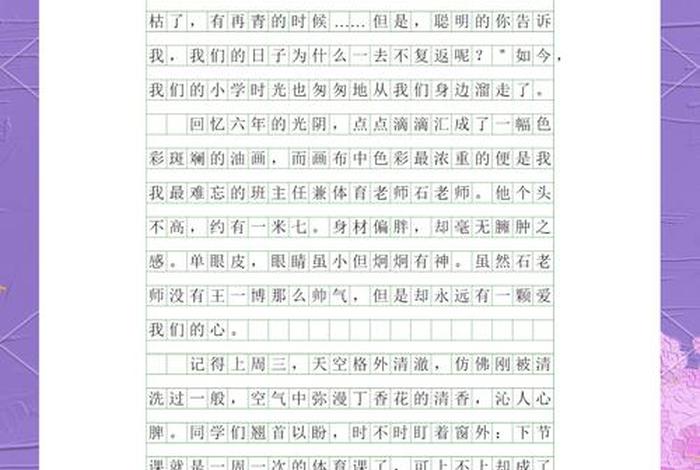 枯了，有再青的时候……但是，聪明的你告诉
我，我们的日子为什么一去不复返呢？”如今，
我们的小学时光也匆匆地从我们身边溜走了。
回忆六年的光阴，点点滴滴汇成了一幅色
彩斑斓的油画，而画布中色彩最浓重的便是我
我最难忘的班主任兼体育老师石老师。他个头
不高，约有一米七。身材偏胖，却毫无臃肿之
感。单眼皮，眼睛虽小但炯炯有神。虽然石老
师没有王一博那么帅气，但是却永远有一颗爱
我们的心。
记得上周三，天空格外清澈，仿佛刚被清
洗过一般，空气中弥漫丁香花的清香，沁人心
脾。同学们翘首以盼，时不时盯着窗外：下节
课就是一周一次的体育课了，可上不上却成了